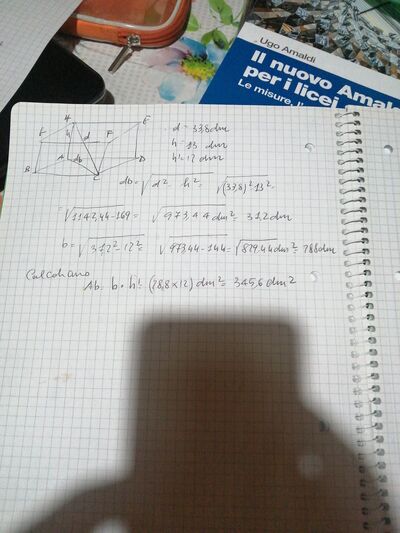 Ugo Amaldi
Il nuovo Amal
per i licei
Le misure, l'
H E
d F
h
A D
db
B C
d = 33,8 dm
h = 13 dm
h' = 12 dm
db = √d² - h² = √(33,8)² - 13² =
= √1142,44 - 169 = √973,44 dm² = 31,2 dm
b = √31,2² - 12² = √973,44 - 144 = √829,44 dm² = 28,8 dm
Calcoliamo
Ab = b • h' = (28,8 x 12) dm² = 345,6 dm²